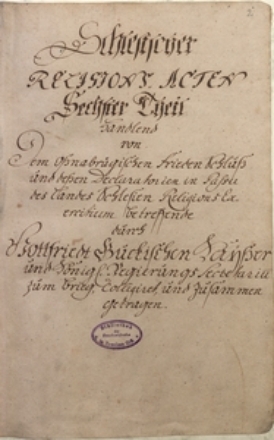 Schlesischer
RELIGIONS ACTEN
Sechster Theil
handlend
von
Dem Osnabrügischen Frieden Schluß
und deßen Declaratorien in Puncto
des Landes Schlesien Religions Ex-
ercitium betreffende
durch
Gottfriedt Bückischen Kayßer
und Königl. Regierungs Secretarium
zum Brieg Colligiret und zusammen
getragen.
Bibliothek